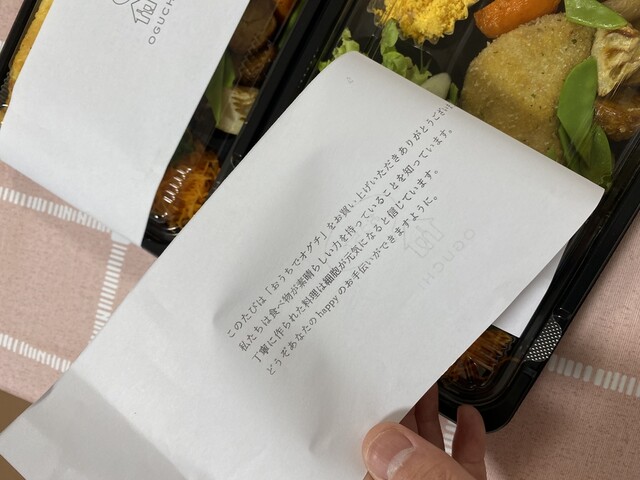 OGUCHI
このたびは「おうちでオグチ」をお買い上げいただきありがとうござい
私たちは食べ物が素晴らしい力を持っていることを知っています。
丁寧に作られた料理は細胞が元気になると信じています。
どうぞあなたのhappyのお手伝いができますように。
OGUCHI